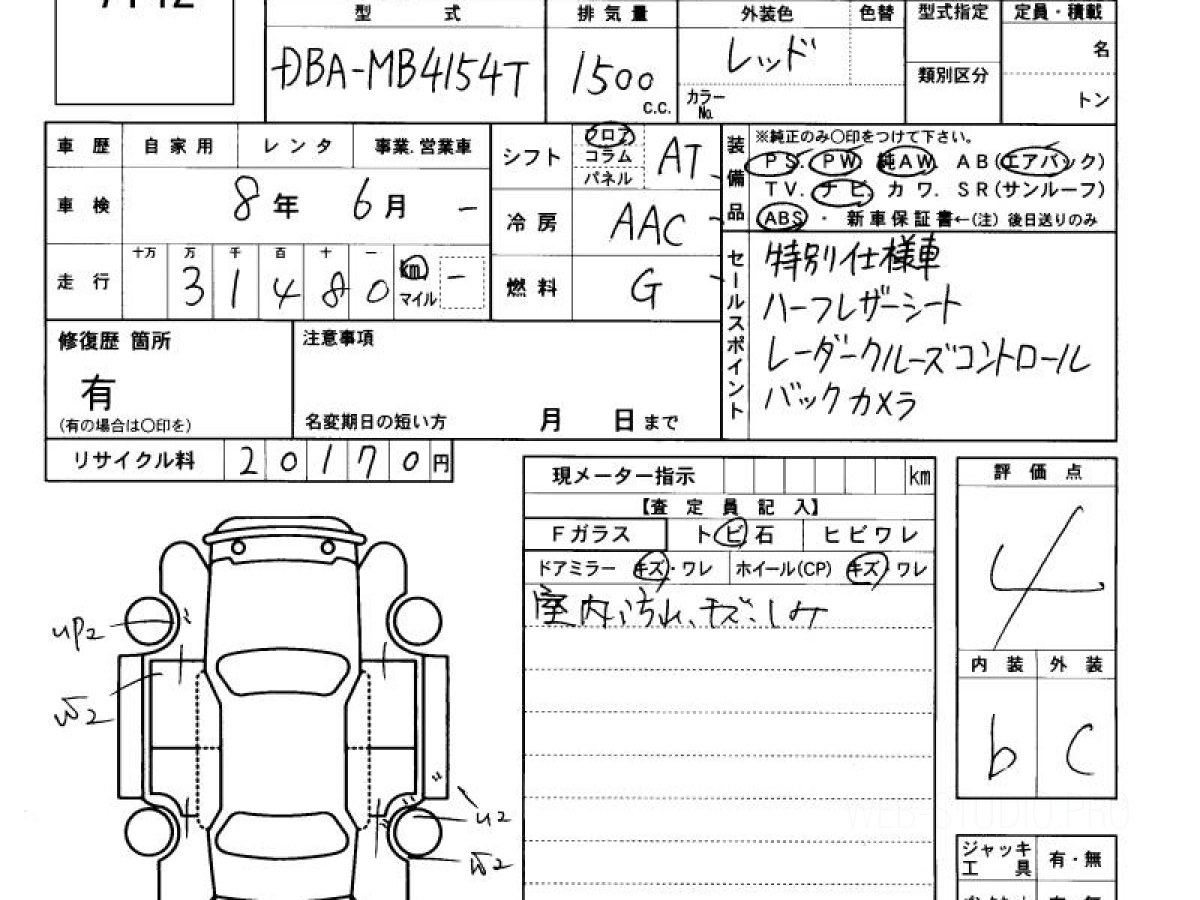 型式 排気量 外装色 色替 型式指定 定員・積載
DBA-MB4154T 1500 c.c. レッド 名
カラーNo. 類別区分 トン
車歴 自家用 レンタ 事業.営業車
シフト フロア コラム パネル AT
車検 8年 6月 -
冷房 AAC
走行 十万 万 千 百 十 一
3 1 4 8 0 km マイル -
燃料 G
装備品 ※純正のみ○印をつけて下さい。
PS. PW 純AW. AB(エアバック)
TV. ナビ. カワ. SR(サンルーフ)
ABS ・ 新車保証書←(注) 後日送りのみ
セールスポイント
特別仕様車
ハーフレザーシート
レーダークルーズコントロール
バックカメラ
修復歴 箇所
有
(有の場合は○印を)
注意事項
名変期日の短い方 月 日まで
リサイクル料 2 0 1 7 0 円
現メーター指示 km
【査定員記入】
Fガラス トビ石 ヒビワレ
ドアミラー キズ・ワレ ホイール(CP) キズ・ワレ
室内汚れ、キズ、しみ
評価点
4
内装 外装
b C
ジャッキ 有・無
工具
UP2
W2
U2
W2
WEB-STUDIO.PRO